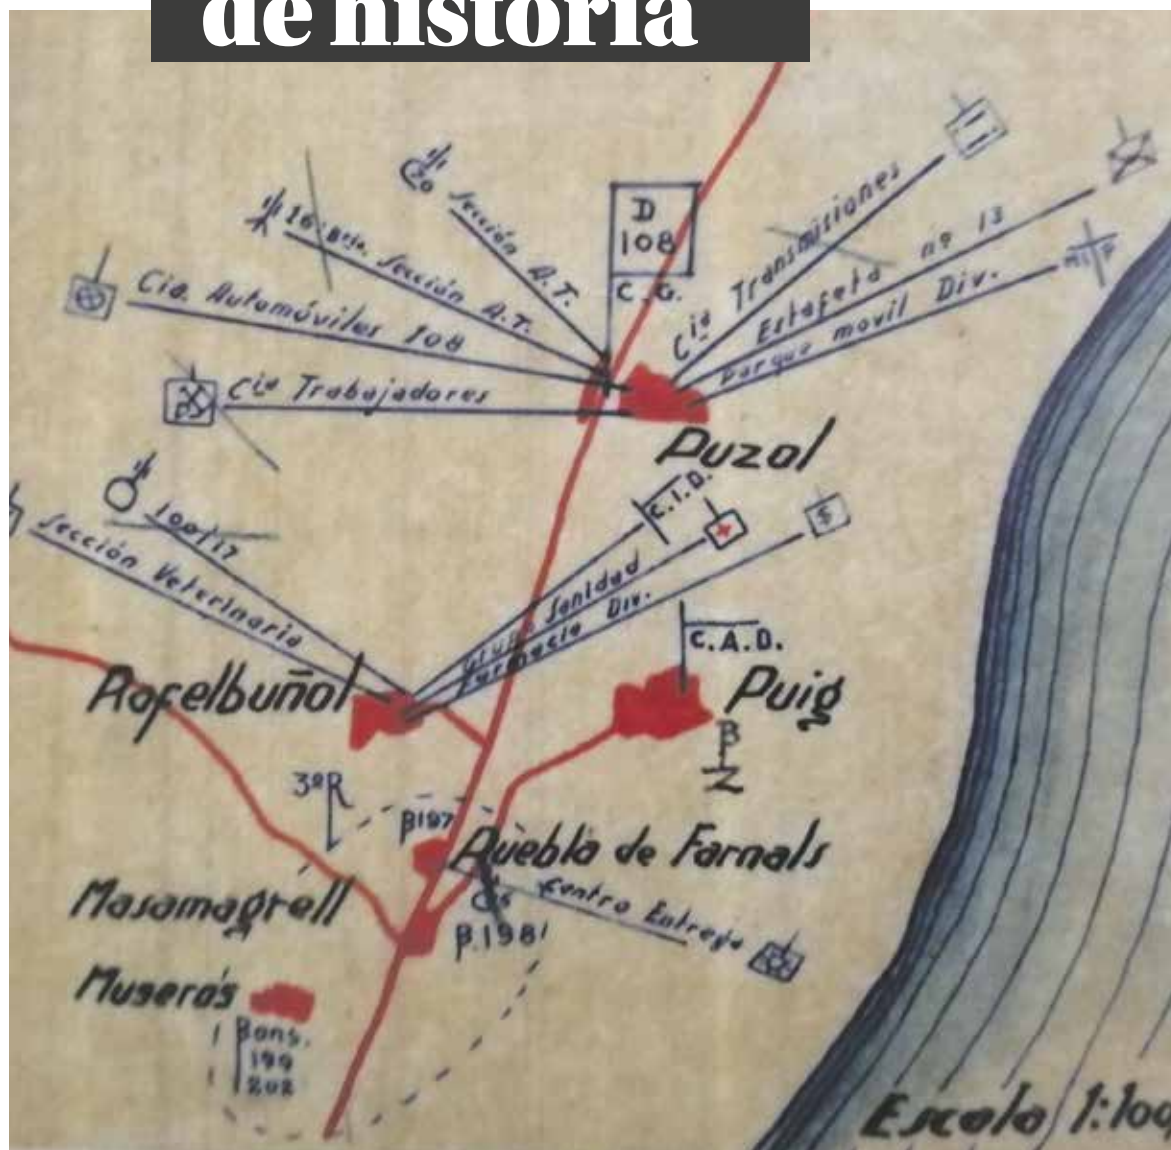 de historia
20 Sección A.T.
16 Bría. Sección A.T.
Cia. Automóviles 108
Cia Trabajadores
D
108
C. G.
Cia Transmisiones
Estafeta nº 13
Parque movil Div.
Puzol
100/17
Sección Veterinaria
C.I.D.
Grupo Sanidad
Farmacia Div.
$
C.A.D.
Rafelbuñol
Puig
B
Z
3ºR
B197
Puebla de Farnals
Centro Entrega
Masamagrell
B.198
Museros
Bons.
199
202
Escala 1:100